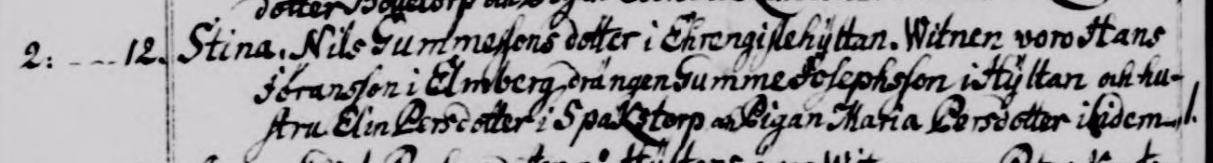 dotter
2: ---- 12. Stina. Nils Gummessons dotter i Ehrengislehÿttan. Witnen voro Hans
Jöransson i Elmberg, drängen Gumme Josephsson i Hÿttan och hu-
stru Elin Persdotter i Spakstorp och Pigan Maria Persdotter ibidem